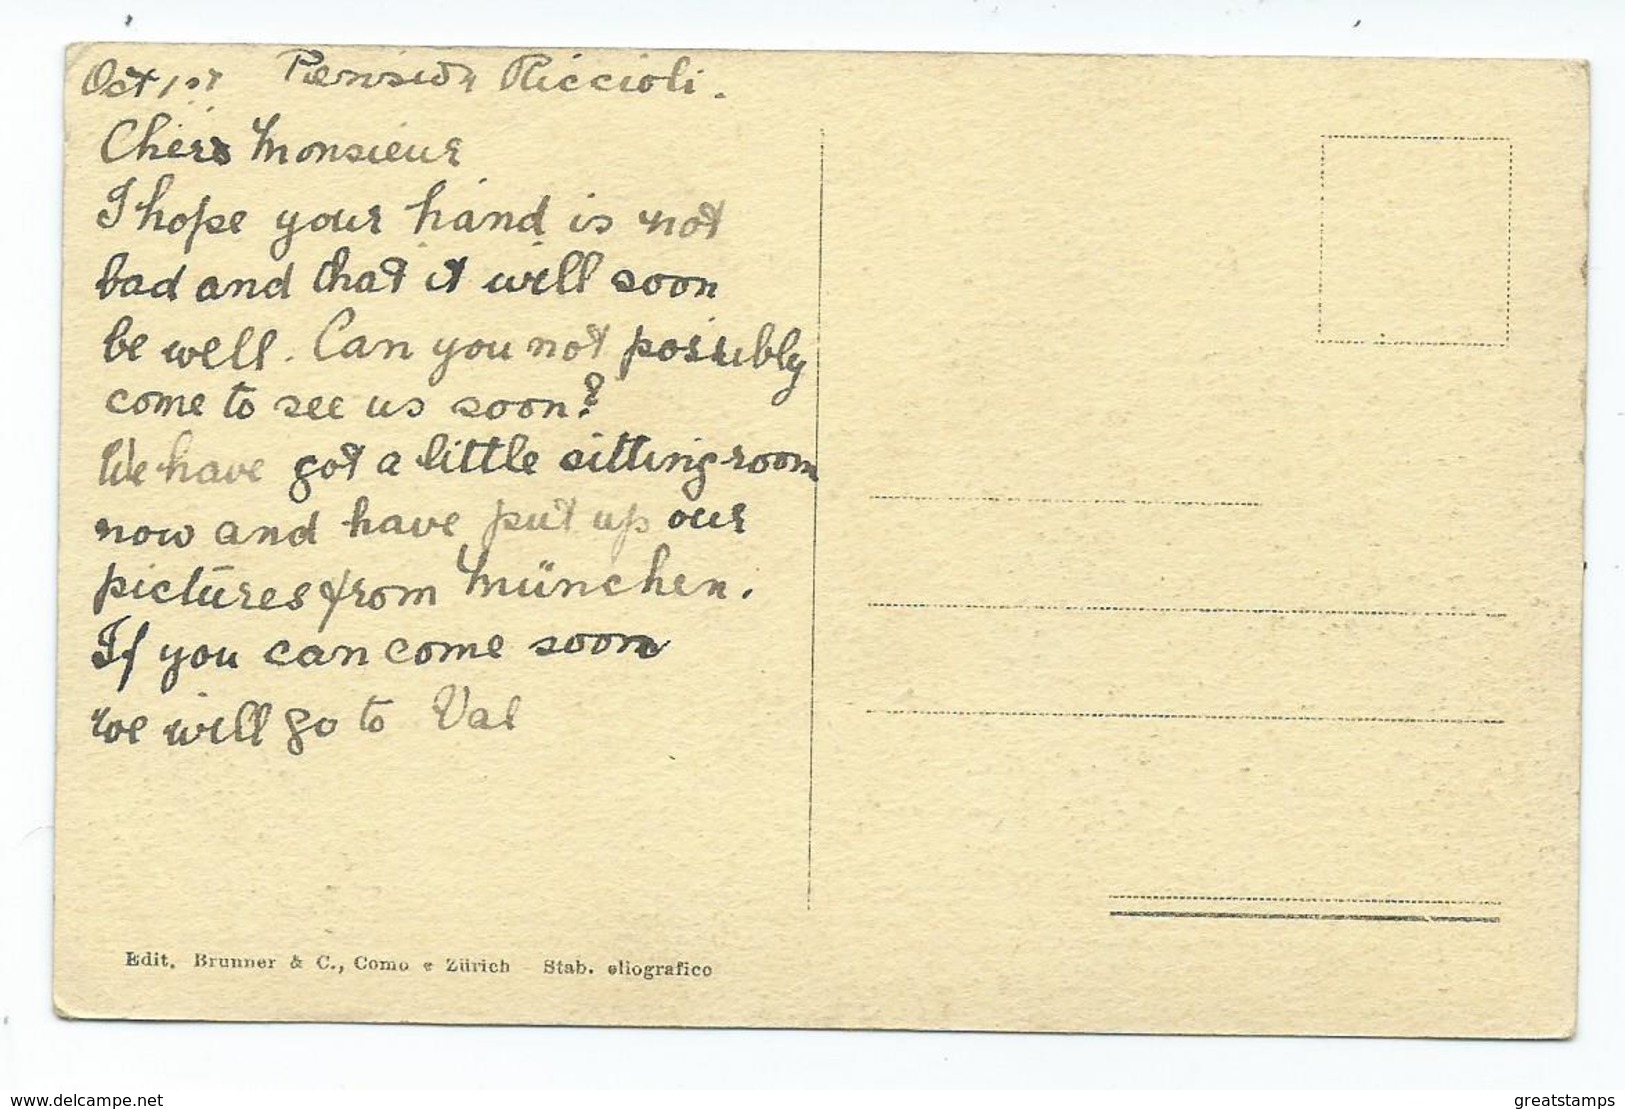 Oct 1st Pension Riccioli.
Cher Monsieur
I hope your hand is not
bad and that it will soon
be well. Can you not possibly
come to see us soon?
We have got a little sitting room
now and have put up our
pictures from München.
If you can come soon
we will go to Val
Edit. Brunner & C., Como e Zürich Stab. eliografico
www.delcampe.net
greatstamps